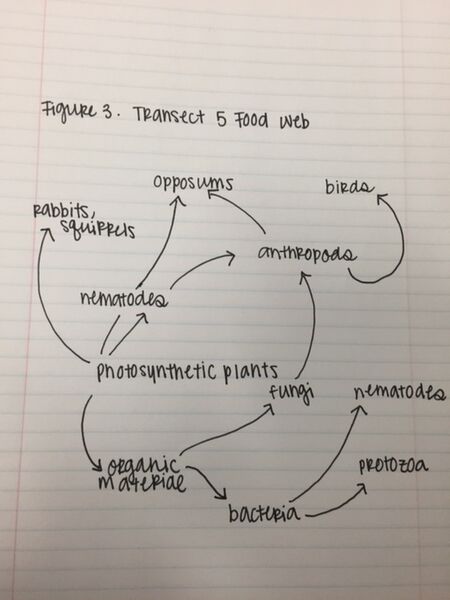 Figure 3. Transect 5 Food Web
opposums
birds
rabbits,
squirrels
anthropods
nematodes
photosynthetic plants
fungi
nematodes
organic
materiae
protozoa
bacteria